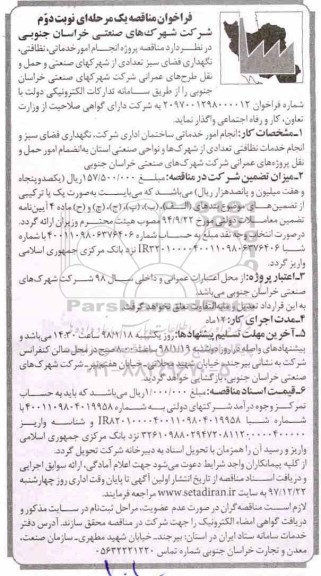 فراخوان مناقصه یک مرحله‌ای نوبت دوم
شرکت شهرک‌های صنعتی خراسان جنوبی
در نظر دارد مناقصه پروژه انجام امور خدماتی، نظافتی،
نگهداری فضای سبز تعدادی از شهرکهای صنعتی و حمل و
نقل طرح‌های عمرانی شرکت شهرکهای صنعتی خراسان
جنوبی را از طریق سامانه تدارکات الکترونیکی دولت با
شماره فراخوان ۲۰۹۷۰۰۱۲۹۸۰۰۰۰۱۲ به شرکت دارای گواهی صلاحیت از وزارت
تعاون، کار و رفاه اجتماعی واگذار نماید.
۱ـ مشخصات کار: انجام امور خدماتی ساختمان اداری شرکت، نگهداری فضای سبز و
انجام خدمات نظافتی تعدادی از شهرک‌ها و نواحی صنعتی استان به انضمام امور حمل و
نقل پروژه‌های عمرانی شرکت شهرک‌های صنعتی خراسان جنوبی
۲ـ میزان تضمین شرکت در مناقصه: مبلغ ۱۵۷/۵۰۰/۰۰۰ ریال (یکصد و پنجاه
و هفت میلیون و پانصد هزار ریال) می‌باشد که می‌بایست به صورت یک یا ترکیبی
از تضمین‌های موضوع بندهای (الف)، (ب)، (پ)، (ج)، (چ) و (ح) ماده ۴ آیین‌نامه
تضمین معاملات دولتی مورخ ۹۴/۹/۲۲ مصوب هیئت محترم وزیران ارائه گردد.
در صورت انتخاب وجه نقد مبلغ به حساب شماره ۴۰۰۱۱۰۹۸۰۶۳۷۶۴۰۶ با شماره
شبا نزد بانک مرکزی جمهوری اسلامی
واریز گردد.
۳ـ اعتبار پروژه: از محل اعتبارات عمرانی و داخلی سال ۹۸ شرکت شهرک‌های
صنعتی خراسان جنوبی می‌باشد
به این قرارداد تعدیل و مابه‌التفاوت تعلق نخواهد گرفت.
۴ـ مدت اجرای کار: ۱۲ ماه
۵ـ آخرین مهلت تسلیم پیشنهادها: روز یکشنبه ۹۸/۱/۱۸ ساعت ۱۴:۳۰ می‌باشد و
پیشنهادهای واصله در روز دوشنبه ۹۸/۱/۱۹ ساعت ۸:۰۰ صبح در محل سالن کنفرانس
شرکت به نشانی بیرجند، خیابان شهید محلاتی، خیابان هفتم، شرکت شهرک‌های
صنعتی خراسان جنوبی، بازگشایی خواهد گردید.
۶ـ قیمت اسناد مناقصه: مبلغ ۱/۰۰۰/۰۰۰ ریال می‌باشد که باید به حساب
تمرکز وجوه درآمد شرکتهای دولتی به شماره ۴۰۰۱۱۰۹۸۰۴۰۱۹۹۵۸ با
شماره شبا و شناسه واریز
نزد بانک مرکزی جمهوری اسلامی
واریز و رسید آن را همزمان با تحویل اسناد به دبیرخانه شرکت تحویل گردد.
از کلیه پیمانکاران واجد شرایط دعوت می‌شود جهت اعلام آمادگی، ارائه سوابق اجرایی
و دریافت اسناد مناقصه از تاریخ انتشار اولین آگهی تا پایان وقت اداری روز چهارشنبه
۹۷/۱۲/۲۲ به سایت www.setadiran.ir مراجعه فرمایند.
لازم است مناقصه‌گران در صورت عدم عضویت، مراحل ثبت‌نام در سایت مذکور و
دریافت گواهی امضاء الکترونیک را جهت شرکت در مناقصه محقق سازند. آدرس دفتر
خدمات سامانه ستاد ایران در استان: بیرجند. خیابان شهید مطهری، سازمان صنعت،
معدن و تجارت خراسان جنوبی شماره تماس ۰۵۶۳۲۲۲۱۲۲۰